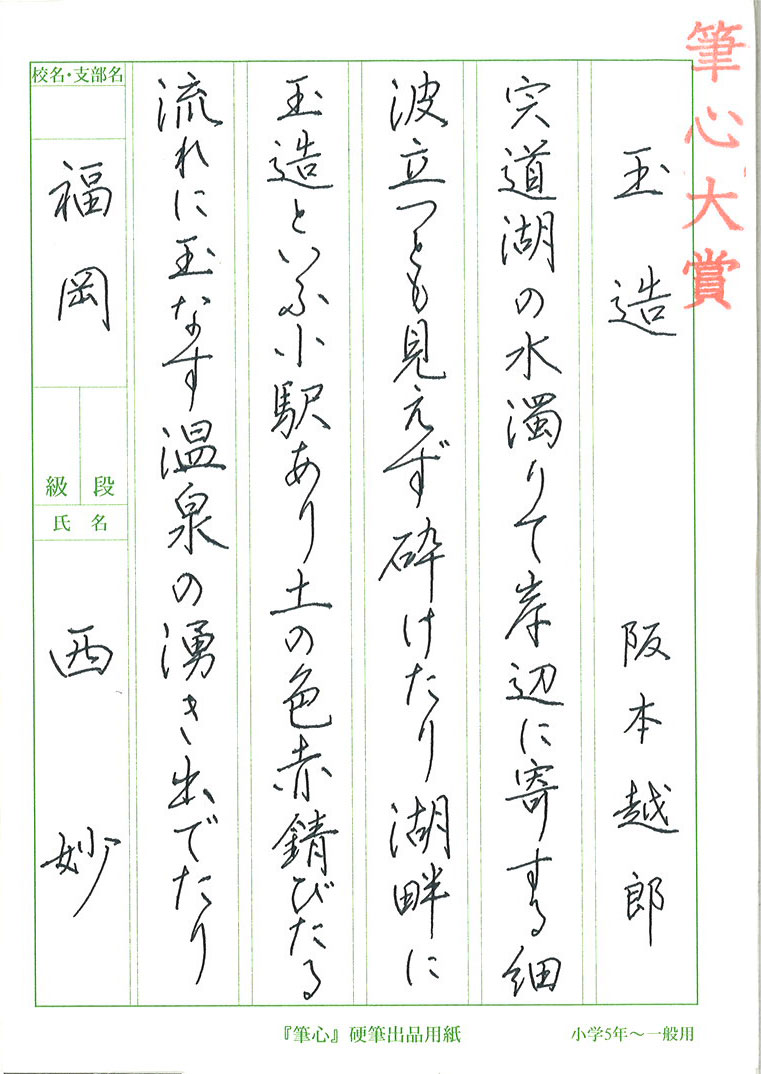 筆心大賞
玉造 阪本越郎
宍道湖の水濁りて岸辺に寄する細
波立つとも見えず砕けたり湖畔に
玉造といふ小駅あり土の色赤錆びたる
流れに玉なす温泉の湧き出でたり
校名・支部名
福岡
段
級
氏名
西妙
『筆心』硬筆出品用紙
小学5年～一般用